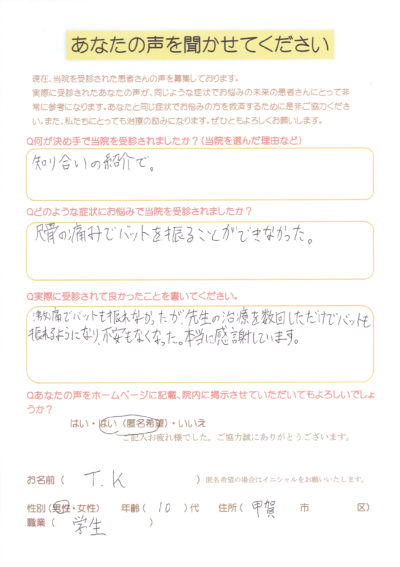 あなたの声を聞かせてください
現在、当院を受診された患者さんの声を募集しております。
実際に受診されたあなたの声が、同じような症状でお悩みの未来の患者さんにとって非
常に参考になります。あなたと同じ症状でお悩みの方を救済するために是非ご協力くださ
い。また、私たちにとっても治療の励みになります。ぜひともよろしくお願いします。
Q何が決め手で当院を受診されましたか？（当院を選んだ理由など）
知り合いの紹介で。
Qどのような症状にお悩みで当院を受診されましたか？
尺骨の痛みでバットを振ることができなかった。
Q実際に受診されて良かったことを書いてください。
激痛でバットも振れなかったが、先生の治療を数回しただけでバットも
振れるようになり、不安もなくなった。本当に感謝しています。
Qあなたの声をホームページに記載、院内に掲示させていただいてもよろしいでしょ
うか？
はい・はい（匿名希望）・いいえ
ご記入お疲れ様でした。ご協力誠にありがとうございます。
お名前（ T.K ）匿名希望の場合はイニシャルをお願いいたします。
性別（男性・女性） 年齢（ 10 ）代 住所（ 甲賀 市 区）
職業（ 学生 ）